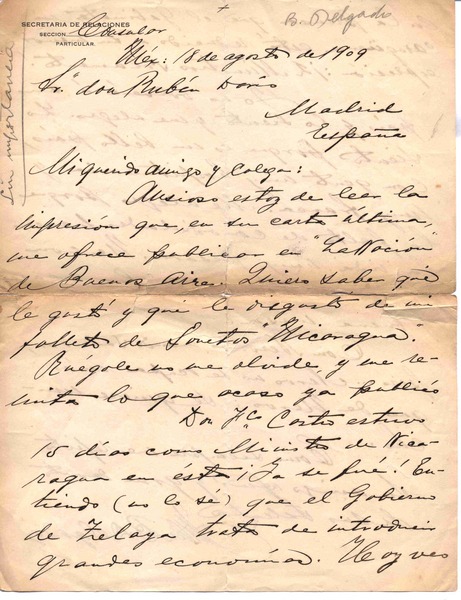 B. Delgado
SECRETARIA DE RELACIONES
SECCION Consular
PARTICULAR.
Sin importancia
Méx: 18 de agosto de 1909
Sr. don Rubén Darío
Madrid
España
Mi querido amigo y colega:
Ansioso estoy de leer la
impresión que, en su carta última,
me ofrece publicar en "La Nación"
de Buenos Aires. Quiero saber qué
le gustó y qué le disgustó de mi
folleto de Sonetos "Nicaragua".
Ruégole no me olvide, y me re-
mita lo que acaso ya publicó
Don Fco Castro estuvo
15 días como Ministro de Nica-
ragua en ésta ¡Ya se fué! En-
tiendo (no lo sé) que el Gobierno
de Zelaya trata de introducir
grandes economías. Hoy veo